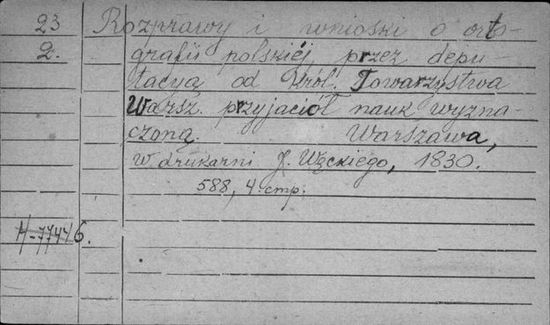 23 Rozprawy i wnioski o orto
2. grafii polskiéj przez depu
tacyą od Król. Towarzystwa
Warsz. przyjaciół nauk wyzna
czoną. Warszawa,
w drukarni J. Węckiego, 1830.
588, 4 стр.
H-77446.